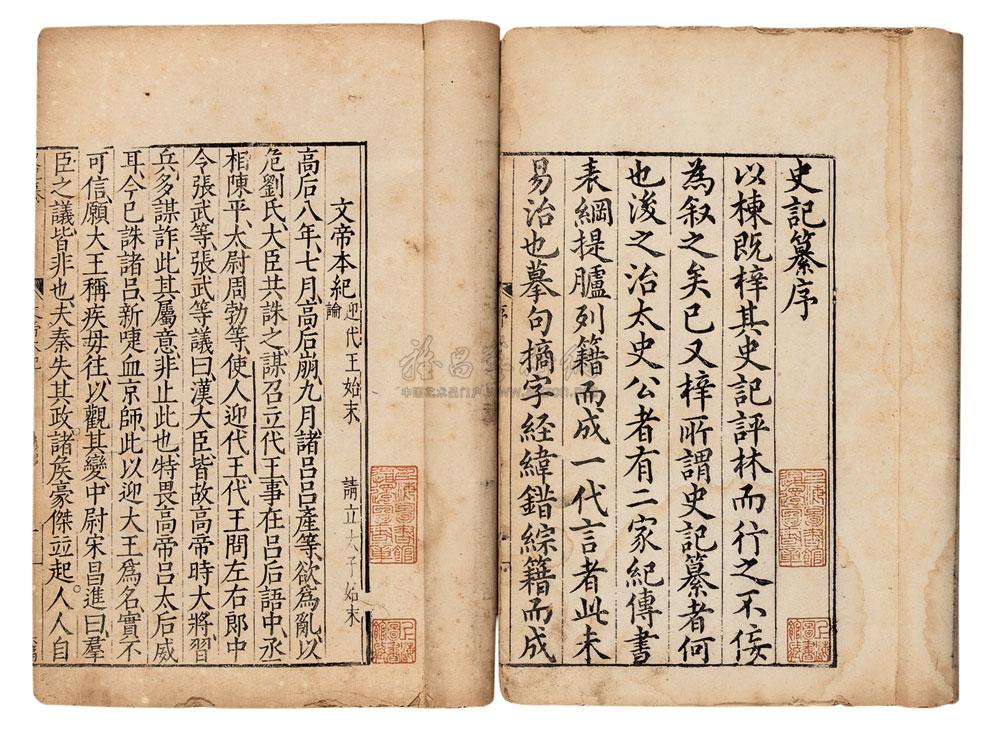 史記纂序
以棟既梓其史記評林而行之不佞
為叙之矣已又梓所謂史記纂者何
也浚之治太史公者有二家紀傳書
表綱提臚列籍而成一代言者此未
易治也摹句摘字経緯錯綜籍而成
文帝本紀 迎代王始末 請立太子始末
論
高后八年七月高后崩九月諸呂呂產等欲爲亂以
危劉氏大臣共誅之謀召立代王事在呂后語中丞
相陳平太尉周勃等使人迎代王代王問左右郎中
令張武等張武等議曰漢大臣皆故高帝時大將習
兵多謀詐此其屬意非止此也特畏高帝呂太后威
耳今已誅諸呂新啑血京師此以迎大王爲名實不
可信願大王稱疾毋往以觀其變中尉宋昌進曰羣
臣之議皆非也夫秦失其政諸侯豪傑竝起人人自